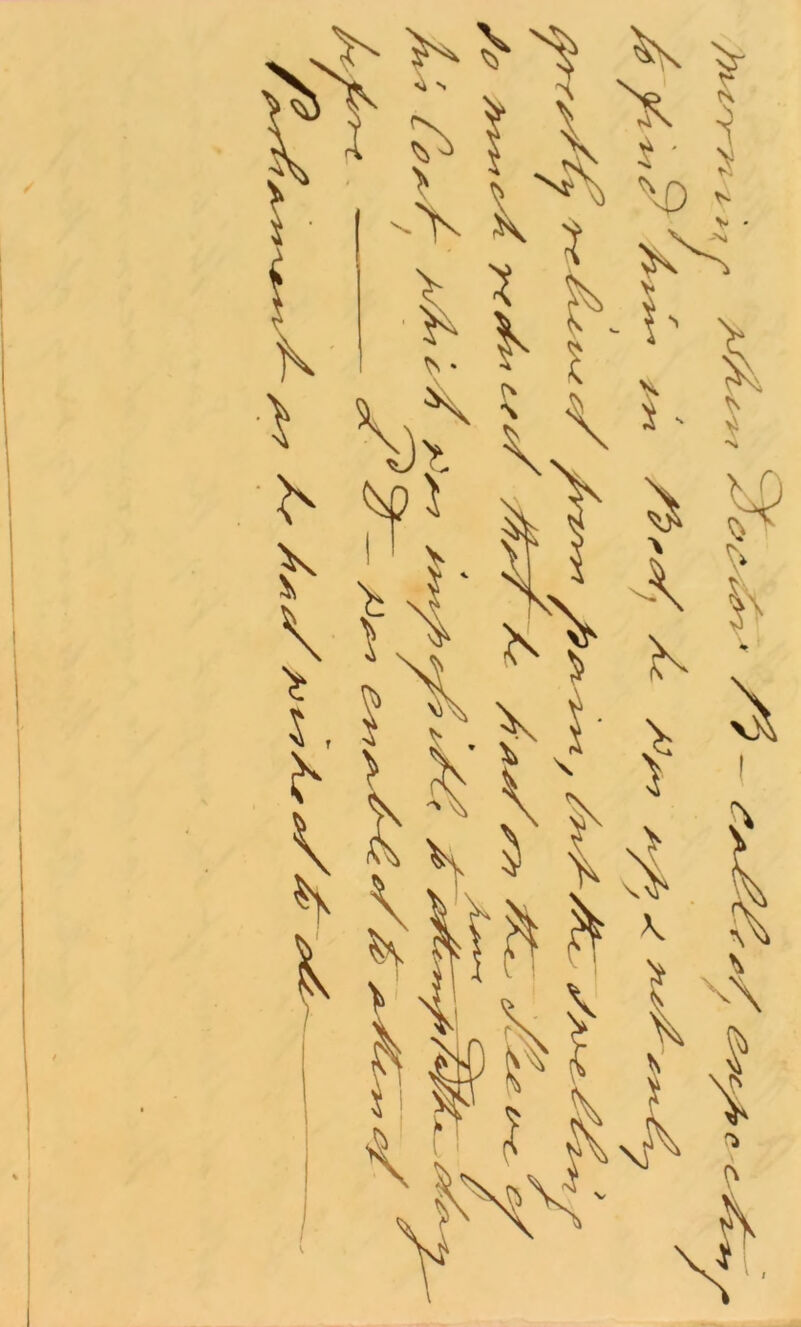 morning when Doctor B— called, expecting
to find him in Bed, he was up, & not only
greatly relieved from pain, but the swelling
so much reduced that he had on the sleeve of
his Coat, which was impossible to have attempted the day
before. — Ld D— was enabled to attend
Parliament as he had wished to do —